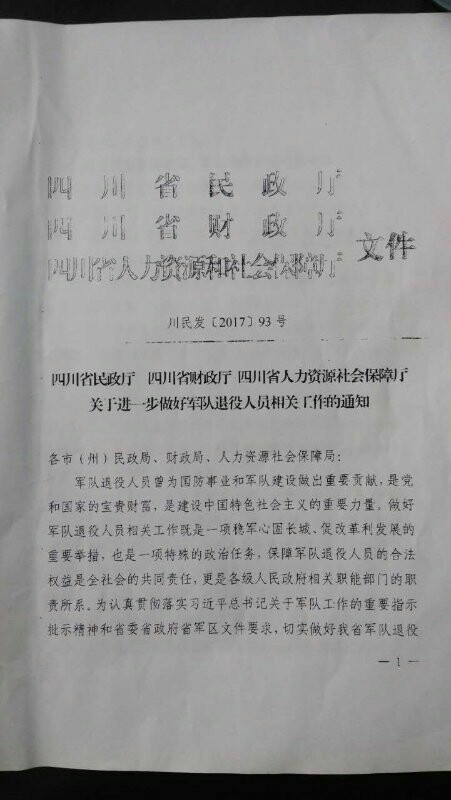 四川省民政厅
四川省财政厅
四川省人力资源和社会保障厅
文件
川民发〔2017〕93号
四川省民政厅 四川省财政厅 四川省人力资源社会保障厅
关于进一步做好军队退役人员相关工作的通知
各市（州）民政局、财政局、人力资源社会保障局：
军队退役人员曾为国防事业和军队建设做出重要贡献，是党
和国家的宝贵财富，是建设中国特色社会主义的重要力量。做好
军队退役人员相关工作既是一项稳军心固长城、促改革利发展的
重要举措，也是一项特殊的政治任务，保障军队退役人员的合法
权益是全社会的共同责任，更是各级人民政府相关职能部门的职
责所系。为认真贯彻落实习近平总书记关于军队工作的重要指示
批示精神和省委省政府省军区文件要求，切实做好我省军队退役
— 1 —